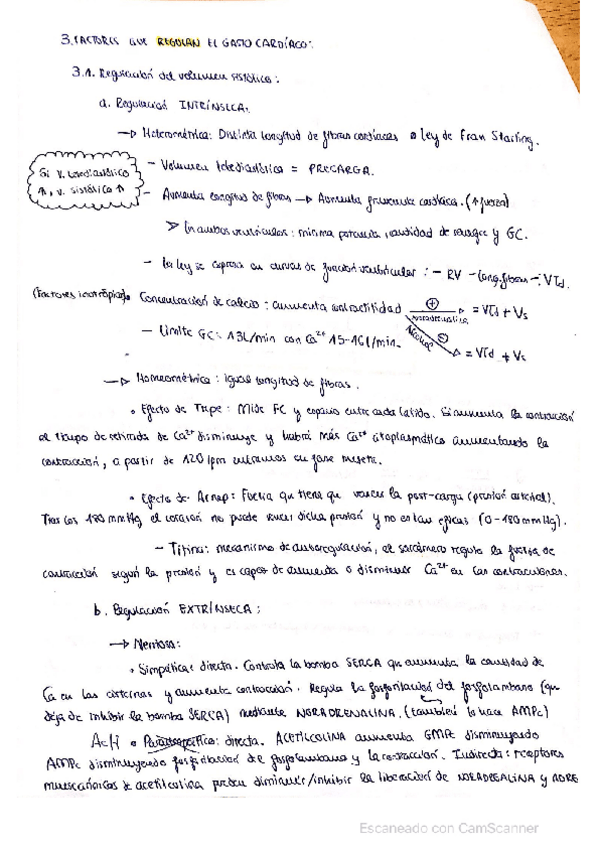 3. FACTORES QUE REGULAN EL GASTO CARDÍACO:
3.1. Regulación del volumen sistólico:
a. Regulación INTRÍNSECA.
→ Heterométrica: Distinta longitud de fibras cardíacas o ley de Fran Starling.
- Volumen telediastólico = PRECARGA.
Si V. telediastólico
↑, v. sistólico ↑
- Aumenta longitud de fibras → Aumenta cardíaca. (↑ fuerza)
> En ambos ventrículos: misma potencia, cantidad de sangre y GC.
- La ley se expresa en curvas de función ventricular: - RV - long. fibras - VTd.
(Factores inotrópicos) Concentración de calcio: aumenta contractilidad ⊕ noradrenalina = VTd + Vs
- Límite GC: 13L/min con Ca2+ 15-16 l/min. ⊖ = VTd + Vs
→ Homeométrica: igual longitud de fibras.
• Efecto de Trepe: Mide FC y espacio entre cada latido. Si aumenta la contracción
el tiempo de retirada de Ca2+ disminuye y habrá más Ca2+ citoplasmático aumentando la
contracción, a partir de 120 lpm entramos en fase meseta.
• Efecto de Anrep: Fuerza que tiene que vencer la post-carga (presión arterial).
Tras los 180 mmHg el corazón no puede vencer dicha presión y no es tan eficaz (0-180 mmHg).
- Titina: mecanismo de autorregulación, el sarcómero regula la fuerza de
contracción según la presión y es capaz de aumentar o disminuir Ca2+ en las contracciones.
b. Regulación EXTRÍNSECA:
→ Nerviosa:
• Simpática: directa. Controla la bomba SERCA que aumenta la cantidad de
Ca en las cisternas y aumenta contracción. Regula la fosforilación del fosfolambano (que
deja de inhibir la bomba SERCA) mediante NORADRENALINA. (también lo hace AMPc)
AcH • Parasimpático: directa. ACETILCOLINA aumenta GMPc disminuyendo
AMPc disminuyendo fosforilación de fosfolambano y la contracción. Indirecta: receptores
muscarínicos de acetilcolina pueden disminuir/inhibir la liberación de NORADRENALINA y
Escaneado con CamScanner